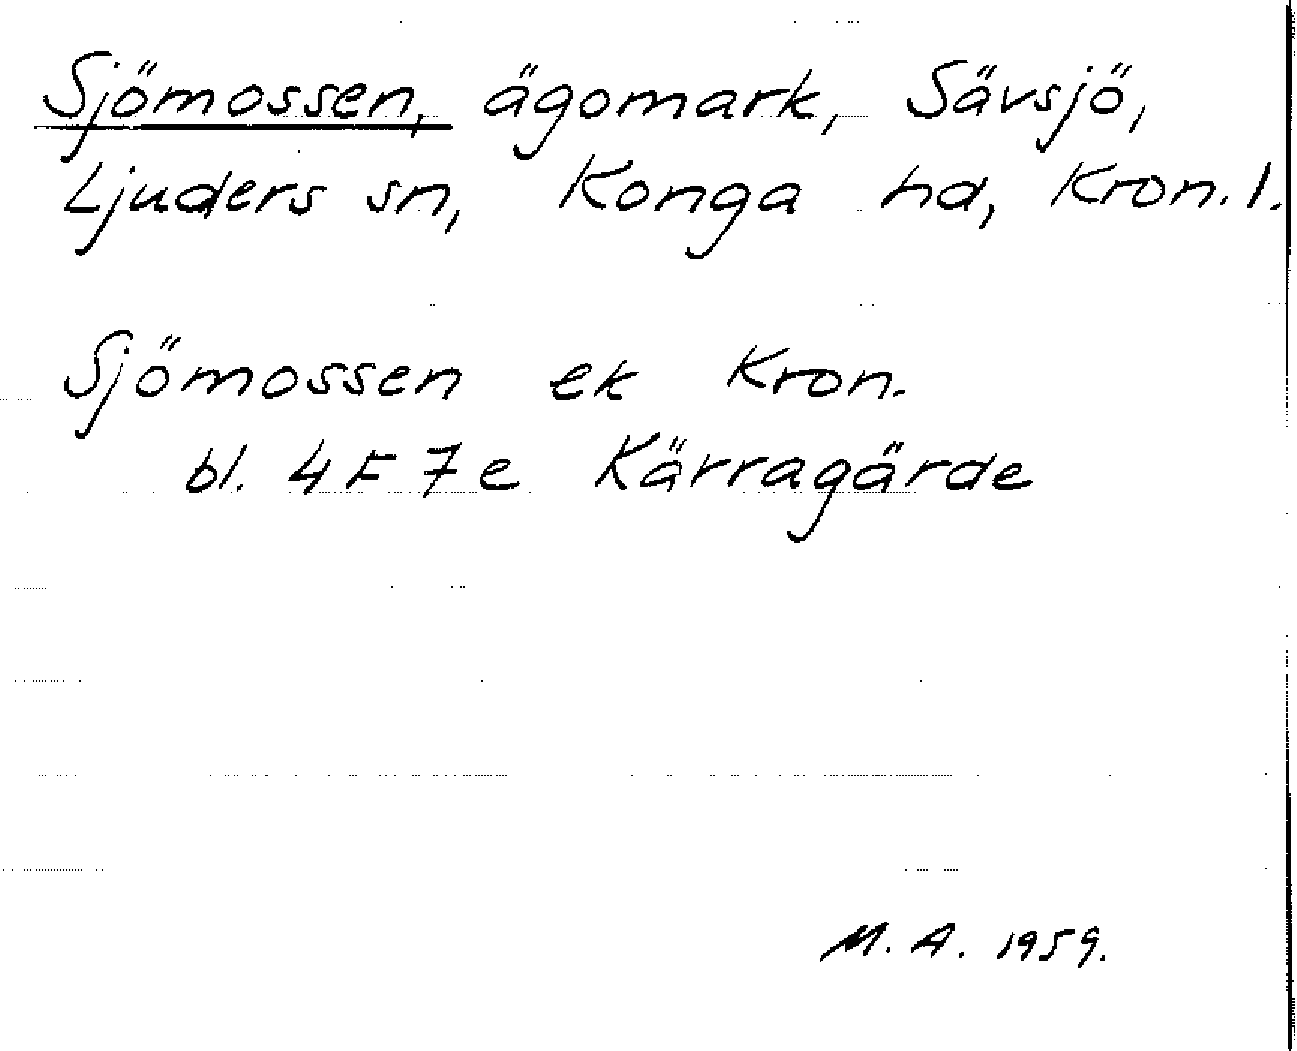 Sjömossen, ägomark, Sävsjö,
Ljuders sn, Konga hd, Kron. l.
Sjömossen ek Kron.
bl. 4 F 7 e Kärragärde
M. A. 1959.